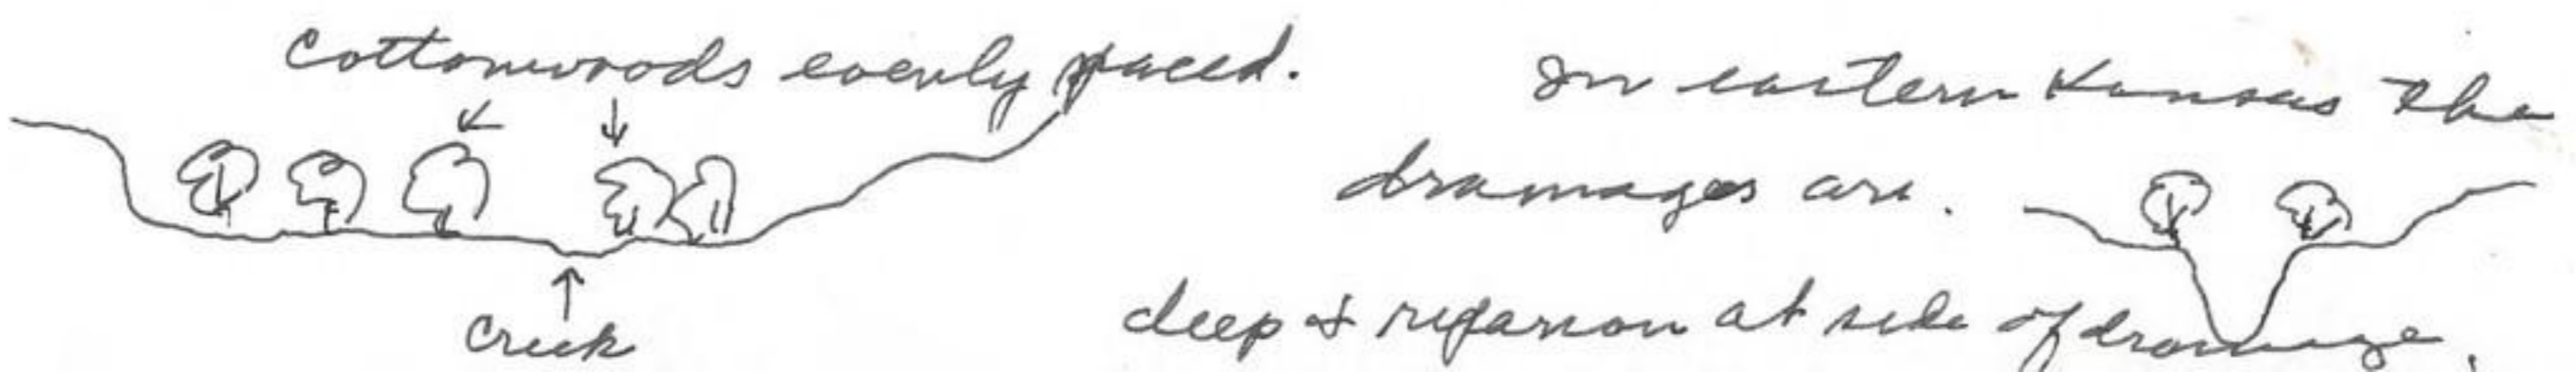 Cottonwoods evenly spaced.
Creek
In eastern Kansas the
drainages are.
deep & riparian at side of drainage.